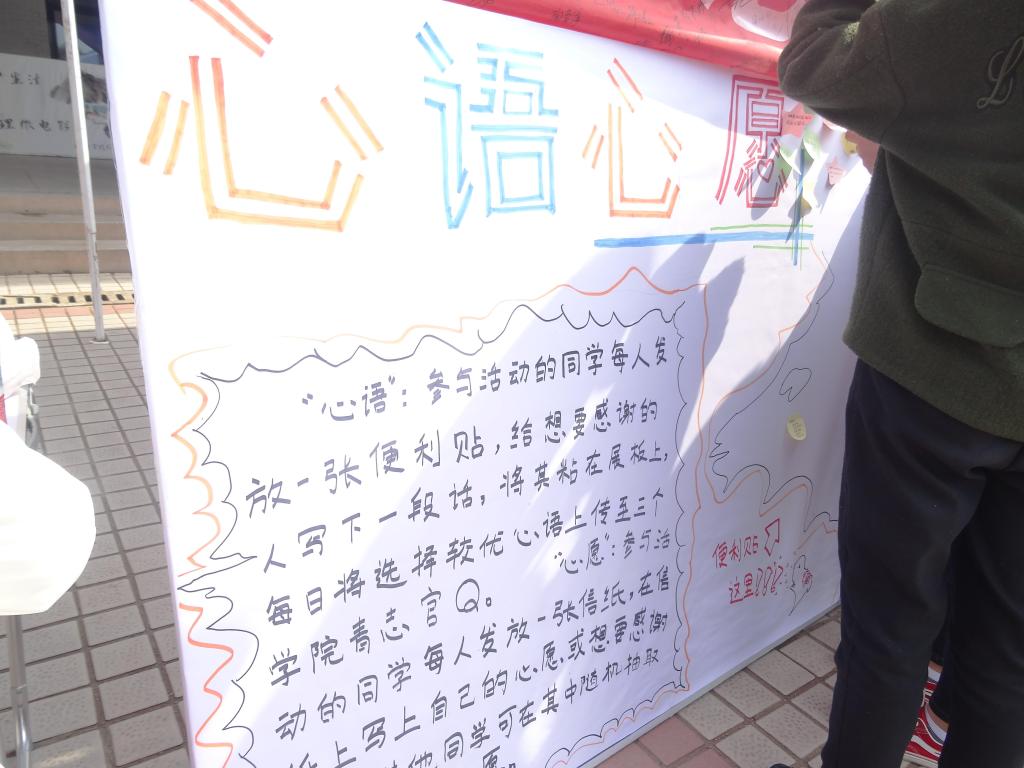 心语心愿
“心语”：参与活动的同学每人发
放一张便利贴，给想要感谢的
人写下一段话，将其粘在展板上，
每日将选择较优心语上传至三个
学院青志官Q。
“心愿”：参与活
动的同学每人发放一张信纸，在信
纸上写上自己的心愿或想要感谢
他同学可在其中随机抽取
愿
便利贴
这里
L